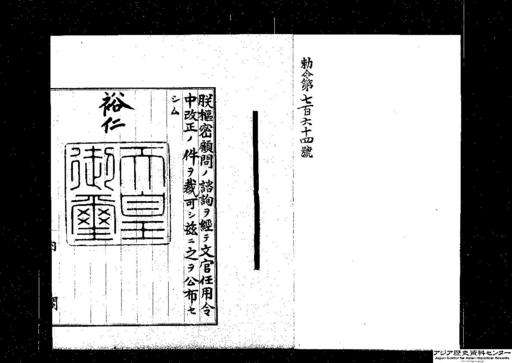 勅令第七百六十四號
朕樞密顧問ノ諮詢ヲ經テ文官任用令
中改正ノ件ヲ裁可シ茲ニ之ヲ公布セ
シム
裕仁
天皇
御璽
内
閣
アジア歴史資料センター
Japan Center for Asian Historical Records